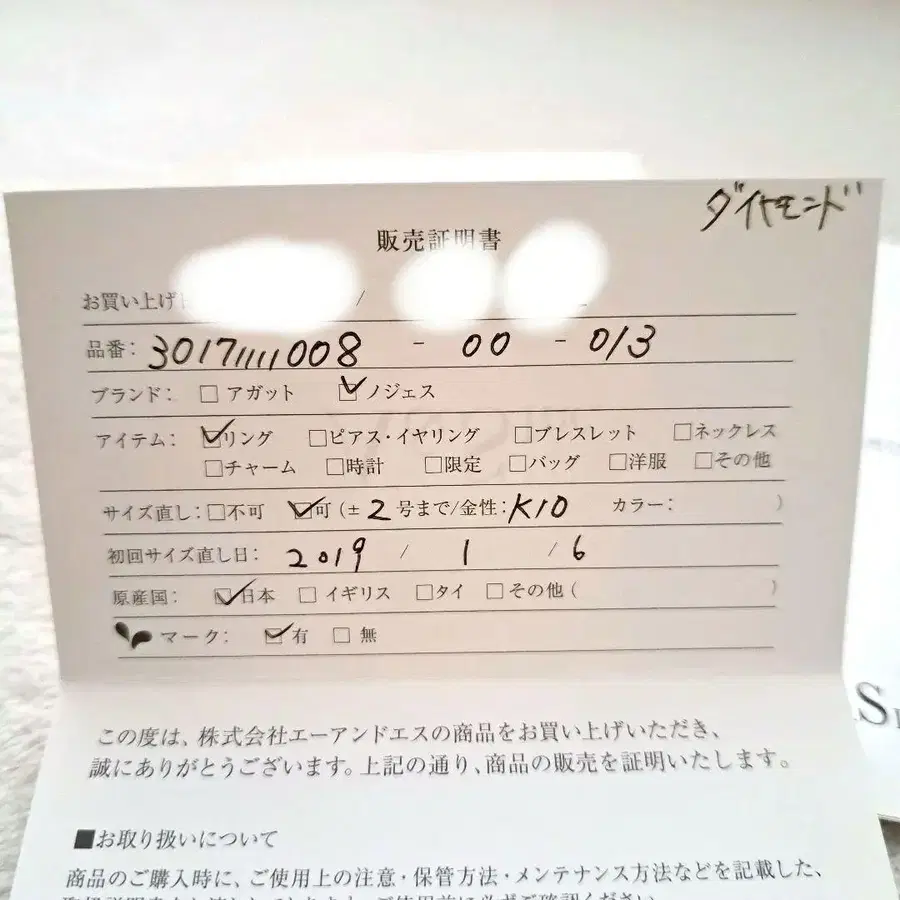 ダイヤモンド
販売証明書
お買い上げ / 
品番: 30171111008 - 00 - 013
ブランド: □ アガット ☑ ノジェス
アイテム: ☑リング □ピアス・イヤリング □ブレスレット □ネックレス
□チャーム □時計 □限定 □バッグ □洋服 □その他
サイズ直し: □不可 ☑可 (± 2 号まで/金性: K10 カラー: )
初回サイズ直し日: 2019 / 1 / 6
原産国: ☑日本 □ イギリス □タイ □その他 ( )
マーク: ☑有 □ 無
この度は、株式会社エーアンドエスの商品をお買い上げいただき、
誠にありがとうございます。上記の通り、商品の販売を証明いたします。
■お取り扱いについて
商品のご購入時に、ご使用上の注意・保管方法・メンテナンス方法などを記載した、